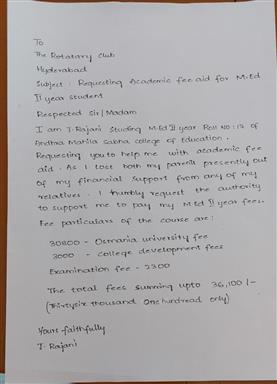 To
The Rotatary Club
Hyderabad
Subject : Requesting Academic fee aid for M.Ed
II year student
Respected Sir / Madam
I am J. Rajani Studing M.Ed II year Roll No: 17 of
Andhra Mahila Sabha College of Education.
Requesting you to help me with academic fee
aid. As I lost both my parents presently out
of my financial support from any of my
relatives. I humbly request the authority
to support me to pay my M.Ed II year fees.
Fee particulars of the course are:
30800 - Osmania university fee
3000 - College development fees
Examination fee - 2300
The total fees summing upto 36,100 /-
(Thirtysix thousand One hundread only)
Yours faithfully
J. Rajani